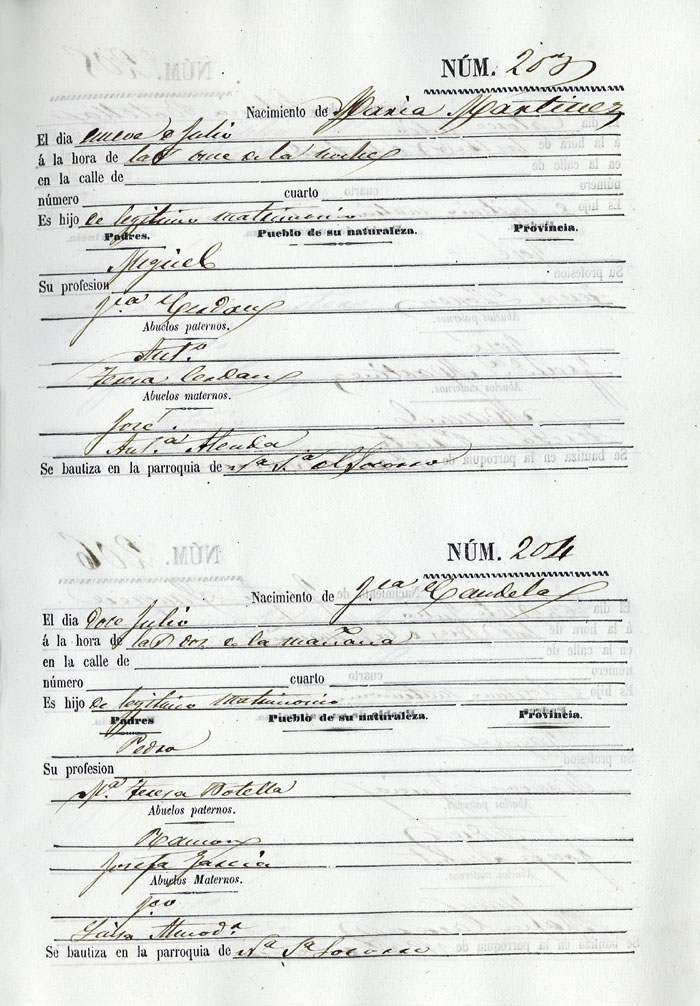 NÚM. 203
Nacimiento de Maria Martinez
El dia nueve de Julio
á la hora de las once de la noche
en la calle de
número cuarto
Es hijo de legitimo matrimonio
Padres. Pueblo de su naturaleza. Provincia.
Miguel
Su profesion
Jᵃ Cerdan
Abuelos paternos.
Antº
Teresa Cerdan
Abuelos maternos.
José
Antª
Se bautiza en la parroquia de Nª Sª del Socorro
NÚM. 204
Nacimiento de Candela
El dia doce Julio
á la hora de las dos de la mañana
en la calle de
número cuarto
Es hijo de legitimo matrimonio
Padres Pueblo de su naturaleza. Provincia.
Pedro
Su profesion
Mª Teresa Botella
Abuelos paternos.
Ramon
Josefa Garcia
Abuelos Maternos.
Luisa
Se bautiza en la parroquia de Nª Sª Socorro